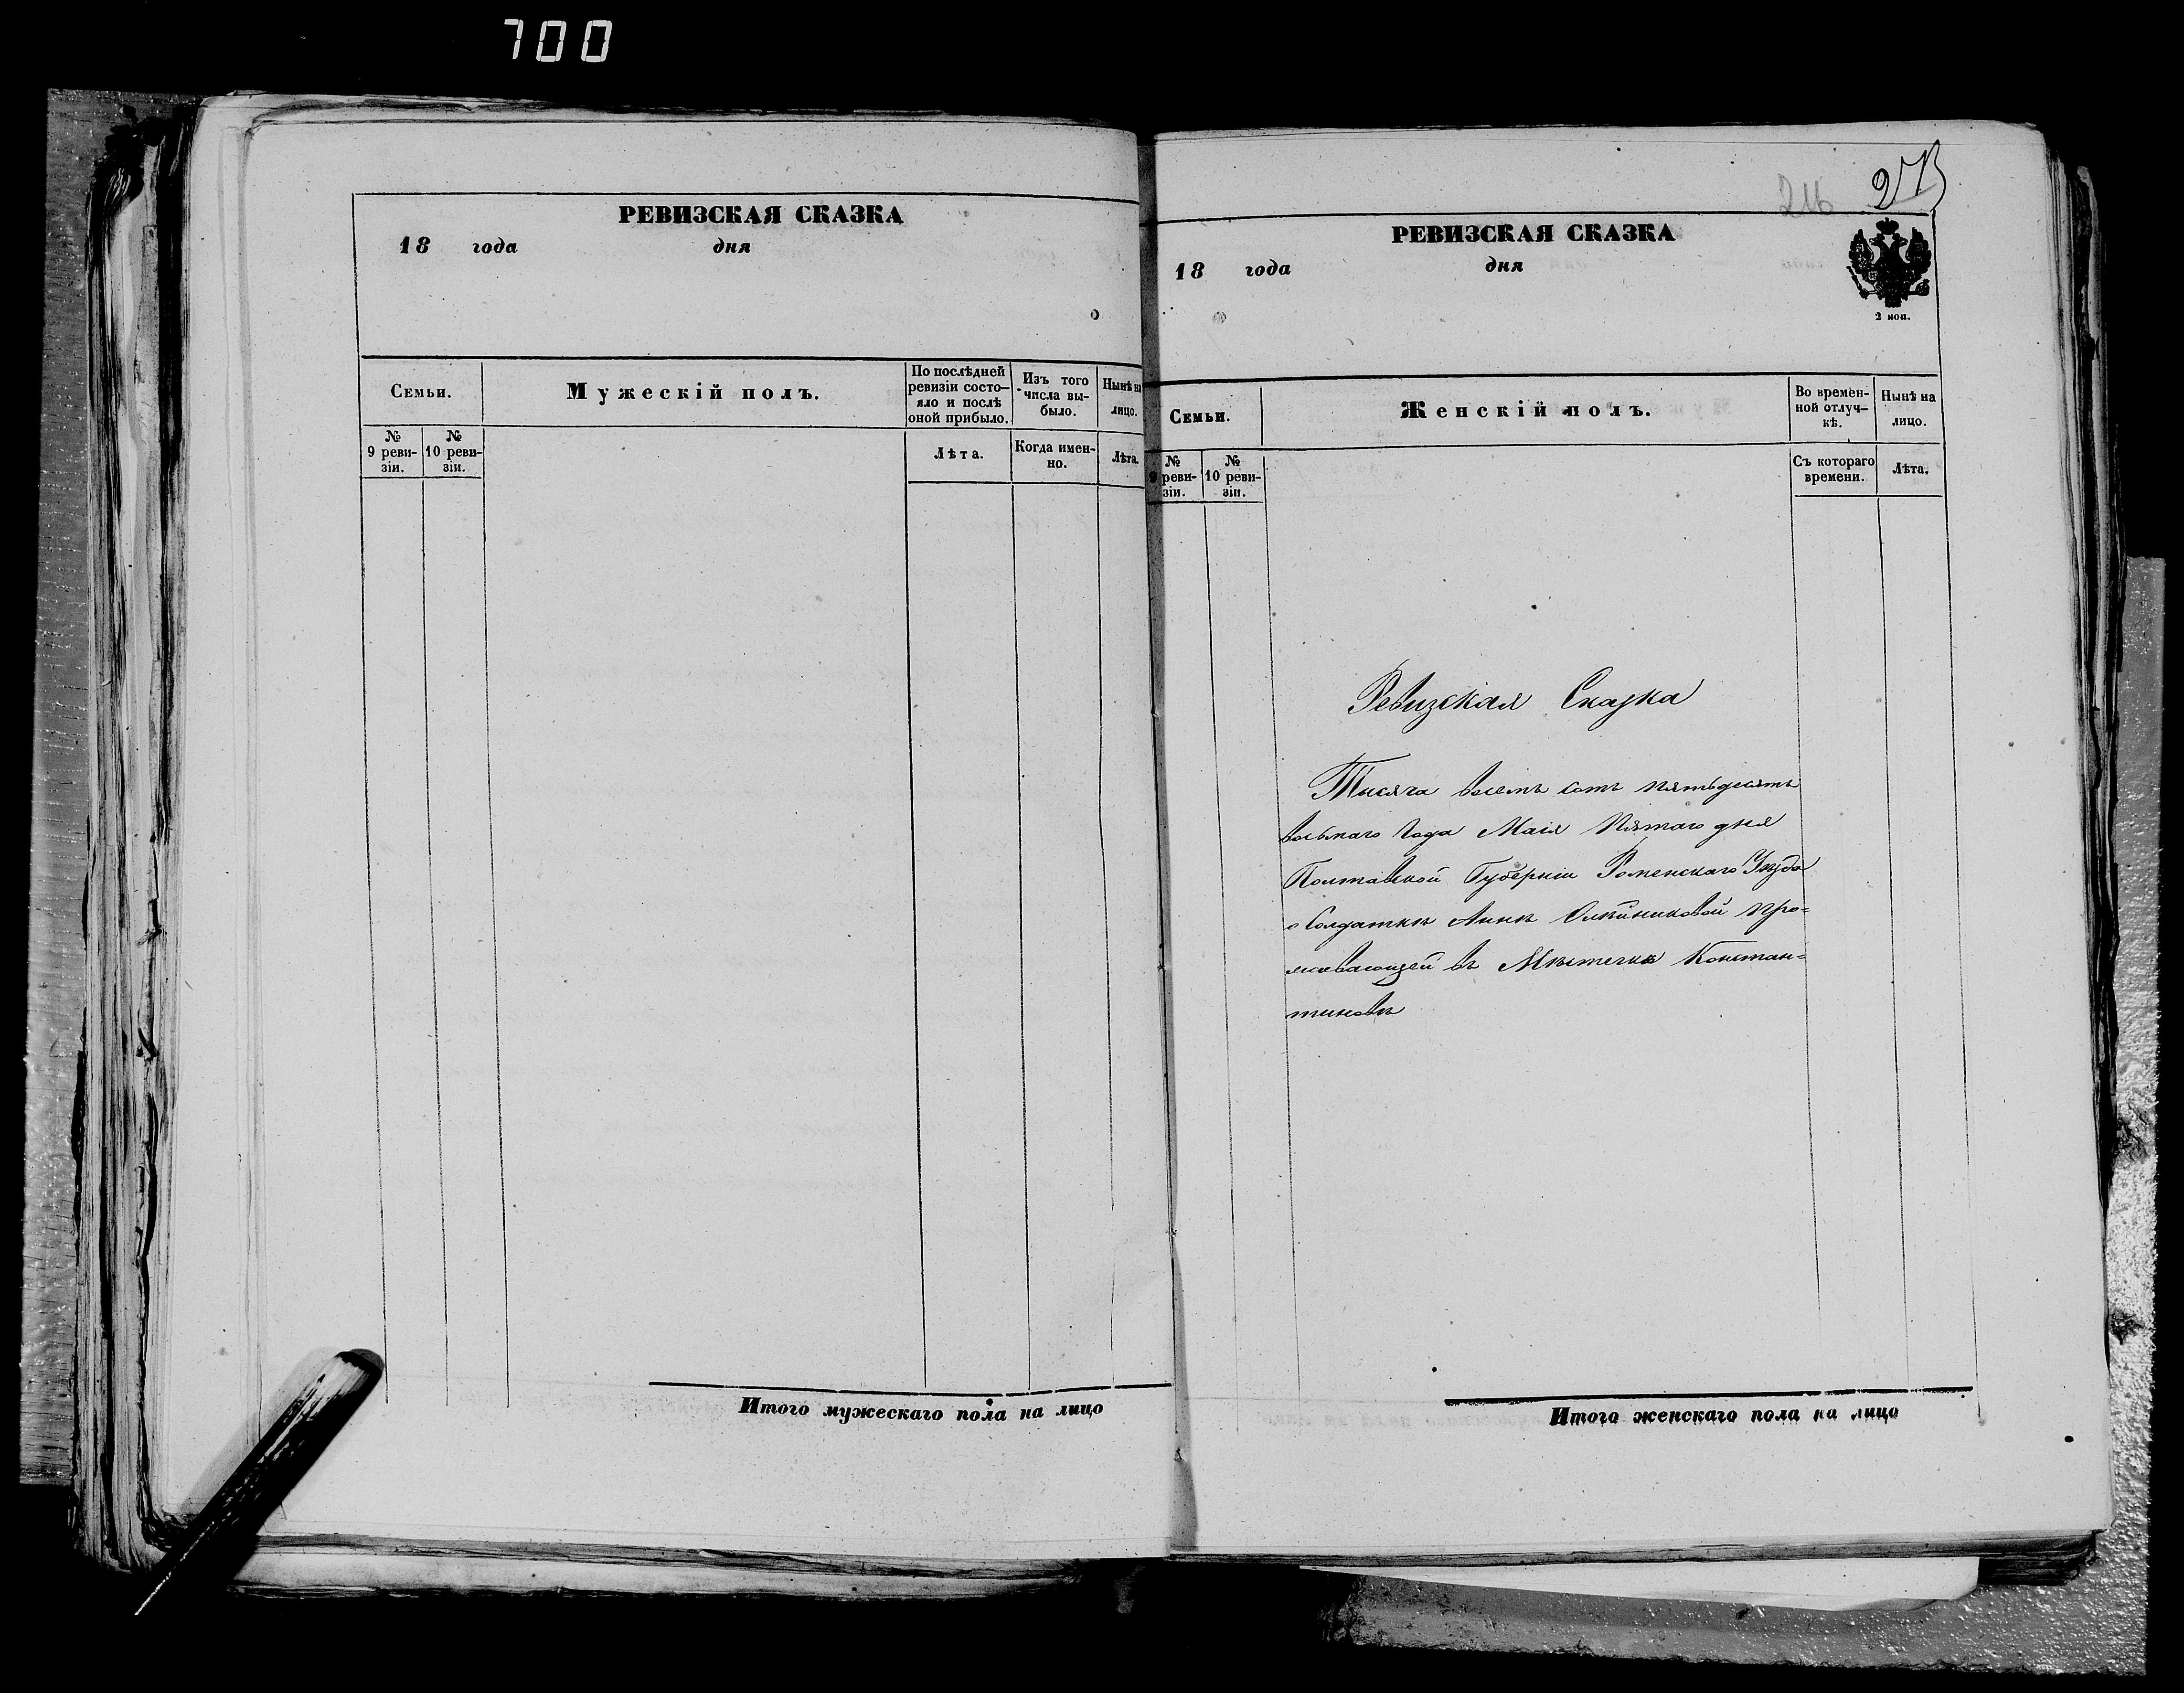 700
РЕВИЗСКАЯ СКАЗКА
18 года дня
Семьи.
Мужескій полъ.
По послѣдней
ревизіи состо-
яло и послѣ
оной прибыло.
Изъ того
числа вы-
было.
Нынѣ на
лицо.
№
9 реви-
зіи.
№
10 реви-
зіи.
Лѣта.
Когда имен-
но.
Лѣта.
Итого мужескаго пола на лицо
216
РЕВИЗСКАЯ СКАЗКА
18 года дня
2 коп.
Семьи.
Женскій полъ.
Во времен-
ной отлуч-
кѣ.
Нынѣ на
лицо.
№
9 реви-
зіи.
№
10 реви-
зіи.
Съ котораго
времени.
Лѣта.
Ревизская Сказка
Тысяча восемь сотъ пятьдесятъ
восьмаго года Маія Пятаго дня
Полтавской Губерніи Роменскаго Уѣзда
о Солдаткѣ Аннѣ Олѣйниковой про=
живающей въ Мѣстечкѣ Констан=
тиновѣ
Итого женскаго пола на лицо